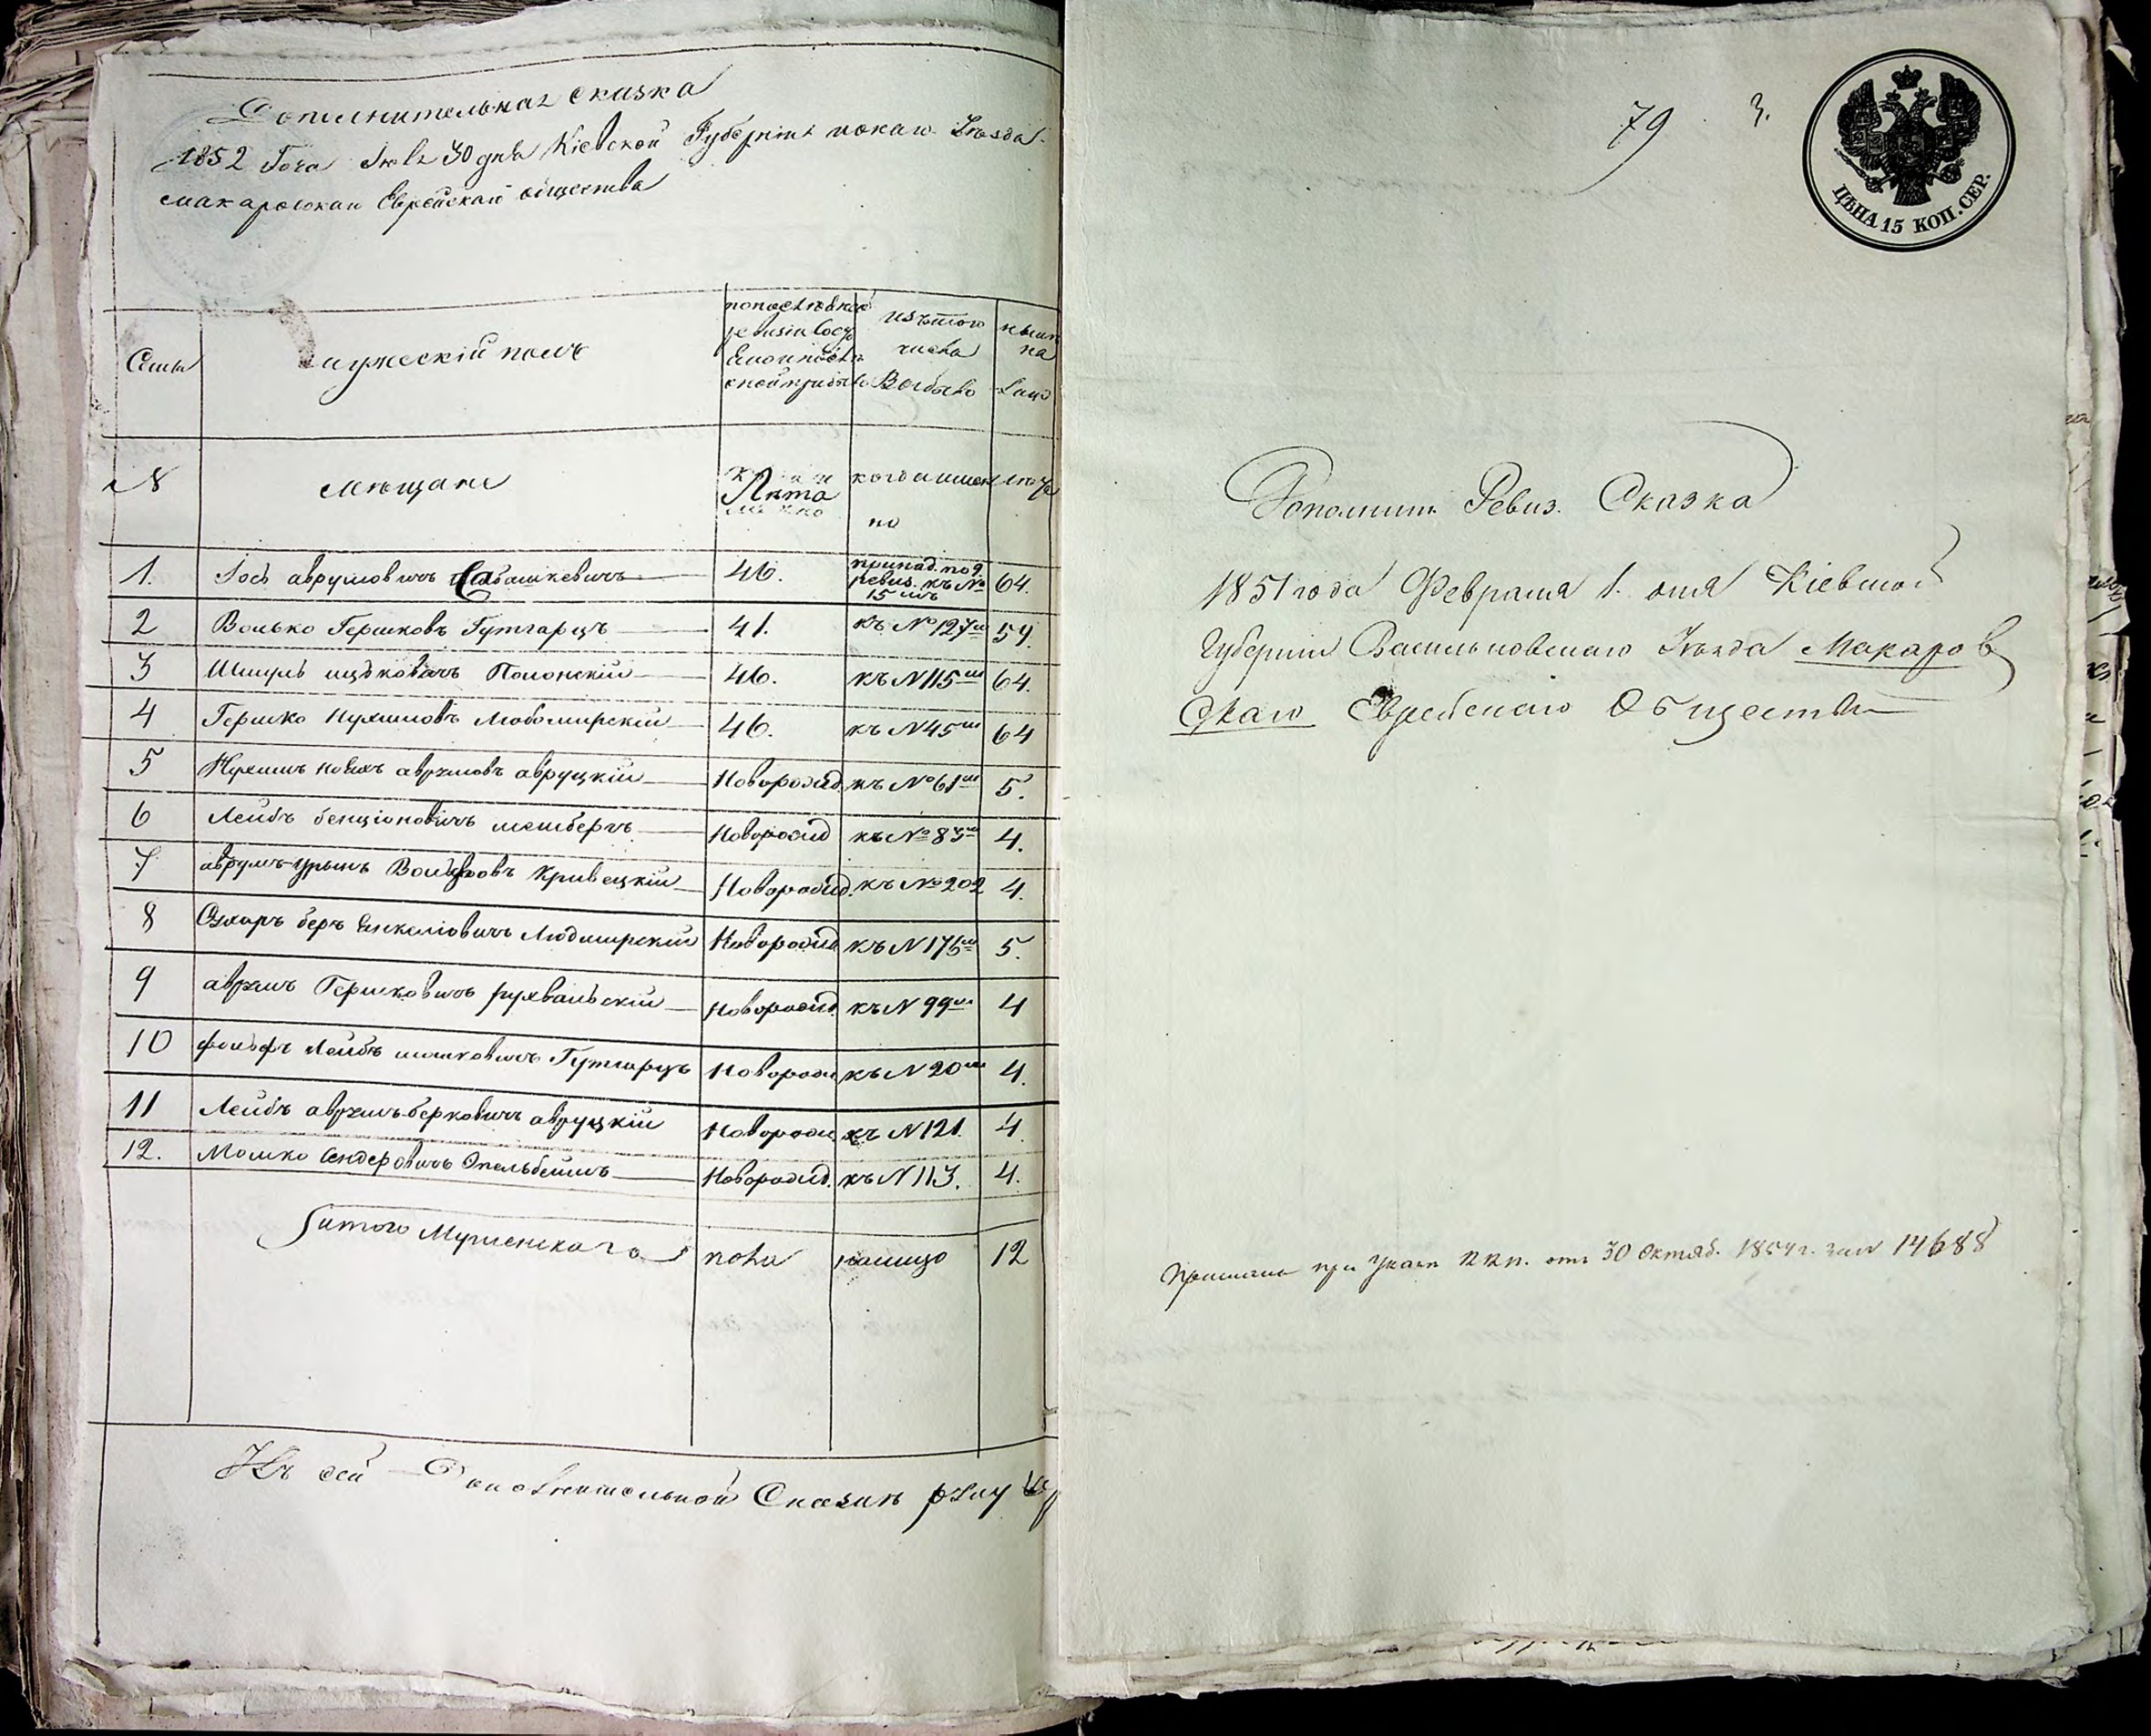 Дополнительная сказка
1852 Года Июля 30 дня Кіевской Губерніи Уезда
Макаровскаи Еврейскаи общества
Семьи
мужескій полъ
изътого
числа
Выбыло
№
мещане
Лѣта
когда имен
но
1. Іось аврумовичъ Сабашкевичъ 46. принад. по 9 ревиз. къ № 15 мъ 64.
2 Волько Гершковъ Гутгарцъ 41. къ № 127 м 59
3 Шмуль ицковичъ Полонскій 46. къ N 115 м 64.
4 Гершко Нухимовъ Любомирскій 46. къ N 45 м 64
5 Нухимъ авргмовъ авруцкій Новорожд. къ № 61 м 5.
6 Лейбъ бенціоновичъ Новорожд къ № 83 м 4.
7 аврумъ-урынъ Вольковъ Кривецкій Новорожд. къ № 202 4.
8 беръ Янкеліовичъ Любмирскій Новорожд къ N 175 м 5.
9 аврамъ Гершковичъ рухвальскій Новорожд. къ N 99 м 4
10 Лейбъ мошковичъ Гутгарцъ Новорожд къ N 20 м 4.
11 Лейбъ аврамъ-берковичъ авруцкій Новорожд къ N 121. 4
12. Мошко Сендеровичъ Новорожд. къ N 113. 4.
итого Мужескаго пола налицо 12
Къ сей Дополнительной Сказкѣ
79 3.
ЦѢНА 15 КОП. СЕР.
Дополнит. Ревиз. Сказка
1851 года Февраля 1. дня Кіевской
Губерніи Васильковскаго Уѣзда Макаров
скаго Еврейскаго Общества
при Указѣ отъ 30 Октяб. 1854 г. за № 14688